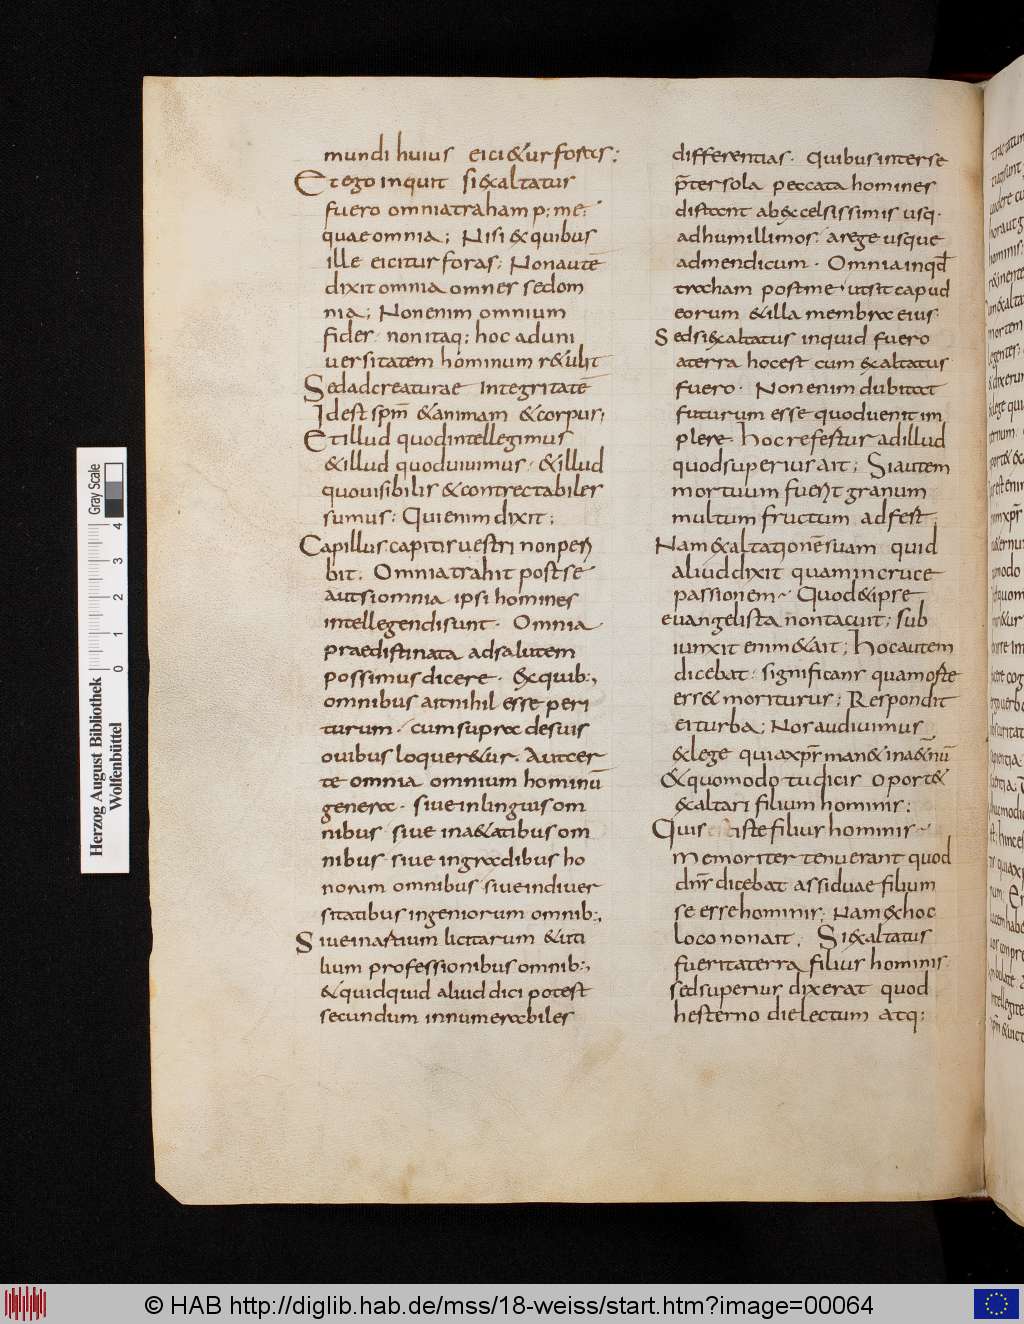 mundi huius eici&ur foras;
Et ego inquit si exaltatus
fuero omnia traham p; me;
quae omnia; Nisi ex quibus
ille eicitur foras; Non autē
dixit omnia omnes sed om
nia; Non enim omnium
fides· non itaq; hoc ad uni
uersitatem hominum r&ulit
Sed ad creaturae Integritatē
Id est spm̄ &animam & corpus;
Et illud quod intellegimus
&illud quod uiuimus· &illud
quo uisibilis & contrectabiles
sumus; Qui enim dixit;
Capillus capitis uestri non peri
bit; Omnia trahit post se
aut si omnia ipsi homines
intellegendi sunt· Omnia
praedistinata ad salutem
possimus dicere· Ex quib;,
omnibus ait nihil esse peri
turum· cum supra de suis
ouibus loquer&ur· Aut cer
te omnia omnium hominū
genera· siue in linguis om
nibus· siue in a&atibus om
nibus· siue in gradibus ho
norum omnibus siue in diuer
sitatibus ingeniorum omnib;,
Siue in artium licitarum &uti
lium professionibus omnib;,
&quid quid aliud dici potest
secundum innumerabiles
differentias· Quibus inter se
p̄ter sola peccata homines
distant ab excelsissimis usq·
ad humillimos· a rege usque
ad mendicum· Omnia inqđ
traham post me ut sit capud
eorum &illa membra eius·
Sed si exaltatus inquid fuero
a terra hoc est cum exaltatus
fuero· Non enim dubitat
futurum esse quod uenit im
plere hoc refestur ad illud
quod superius ait; Si autem
mortuum fuerit granum
multum fructum adfest·
Nam exaltationē suam quid
aliud dixit quam in cruce
passionem· Quod &ipse
euangelista non tacuit; sub
iunxit enim &ait; Hoc autem
dicebat· significans qua moste
ess& moriturus; Respondit
ei turba; Nos audiuimus
&lege quia xp̄s man& in a&nū
&quomodo tu dicis oport&
exaltari filium hominis;
Quis iste filius hominis·
Memoriter tenuerant quod
dn̄s dicebat assiduae filium
se esse hominis; Nam &hoc
loco non ait; Si exaltatus
fuerit a terra filius hominis·
sed superius dixerat quod
hesterno die lectum atq;
Gray Scale
4
3
2
1
0
Herzog August Bibliothek
Wolfenbüttel
© HAB http://diglib.hab.de/mss/18-weiss/start.htm?image=00064